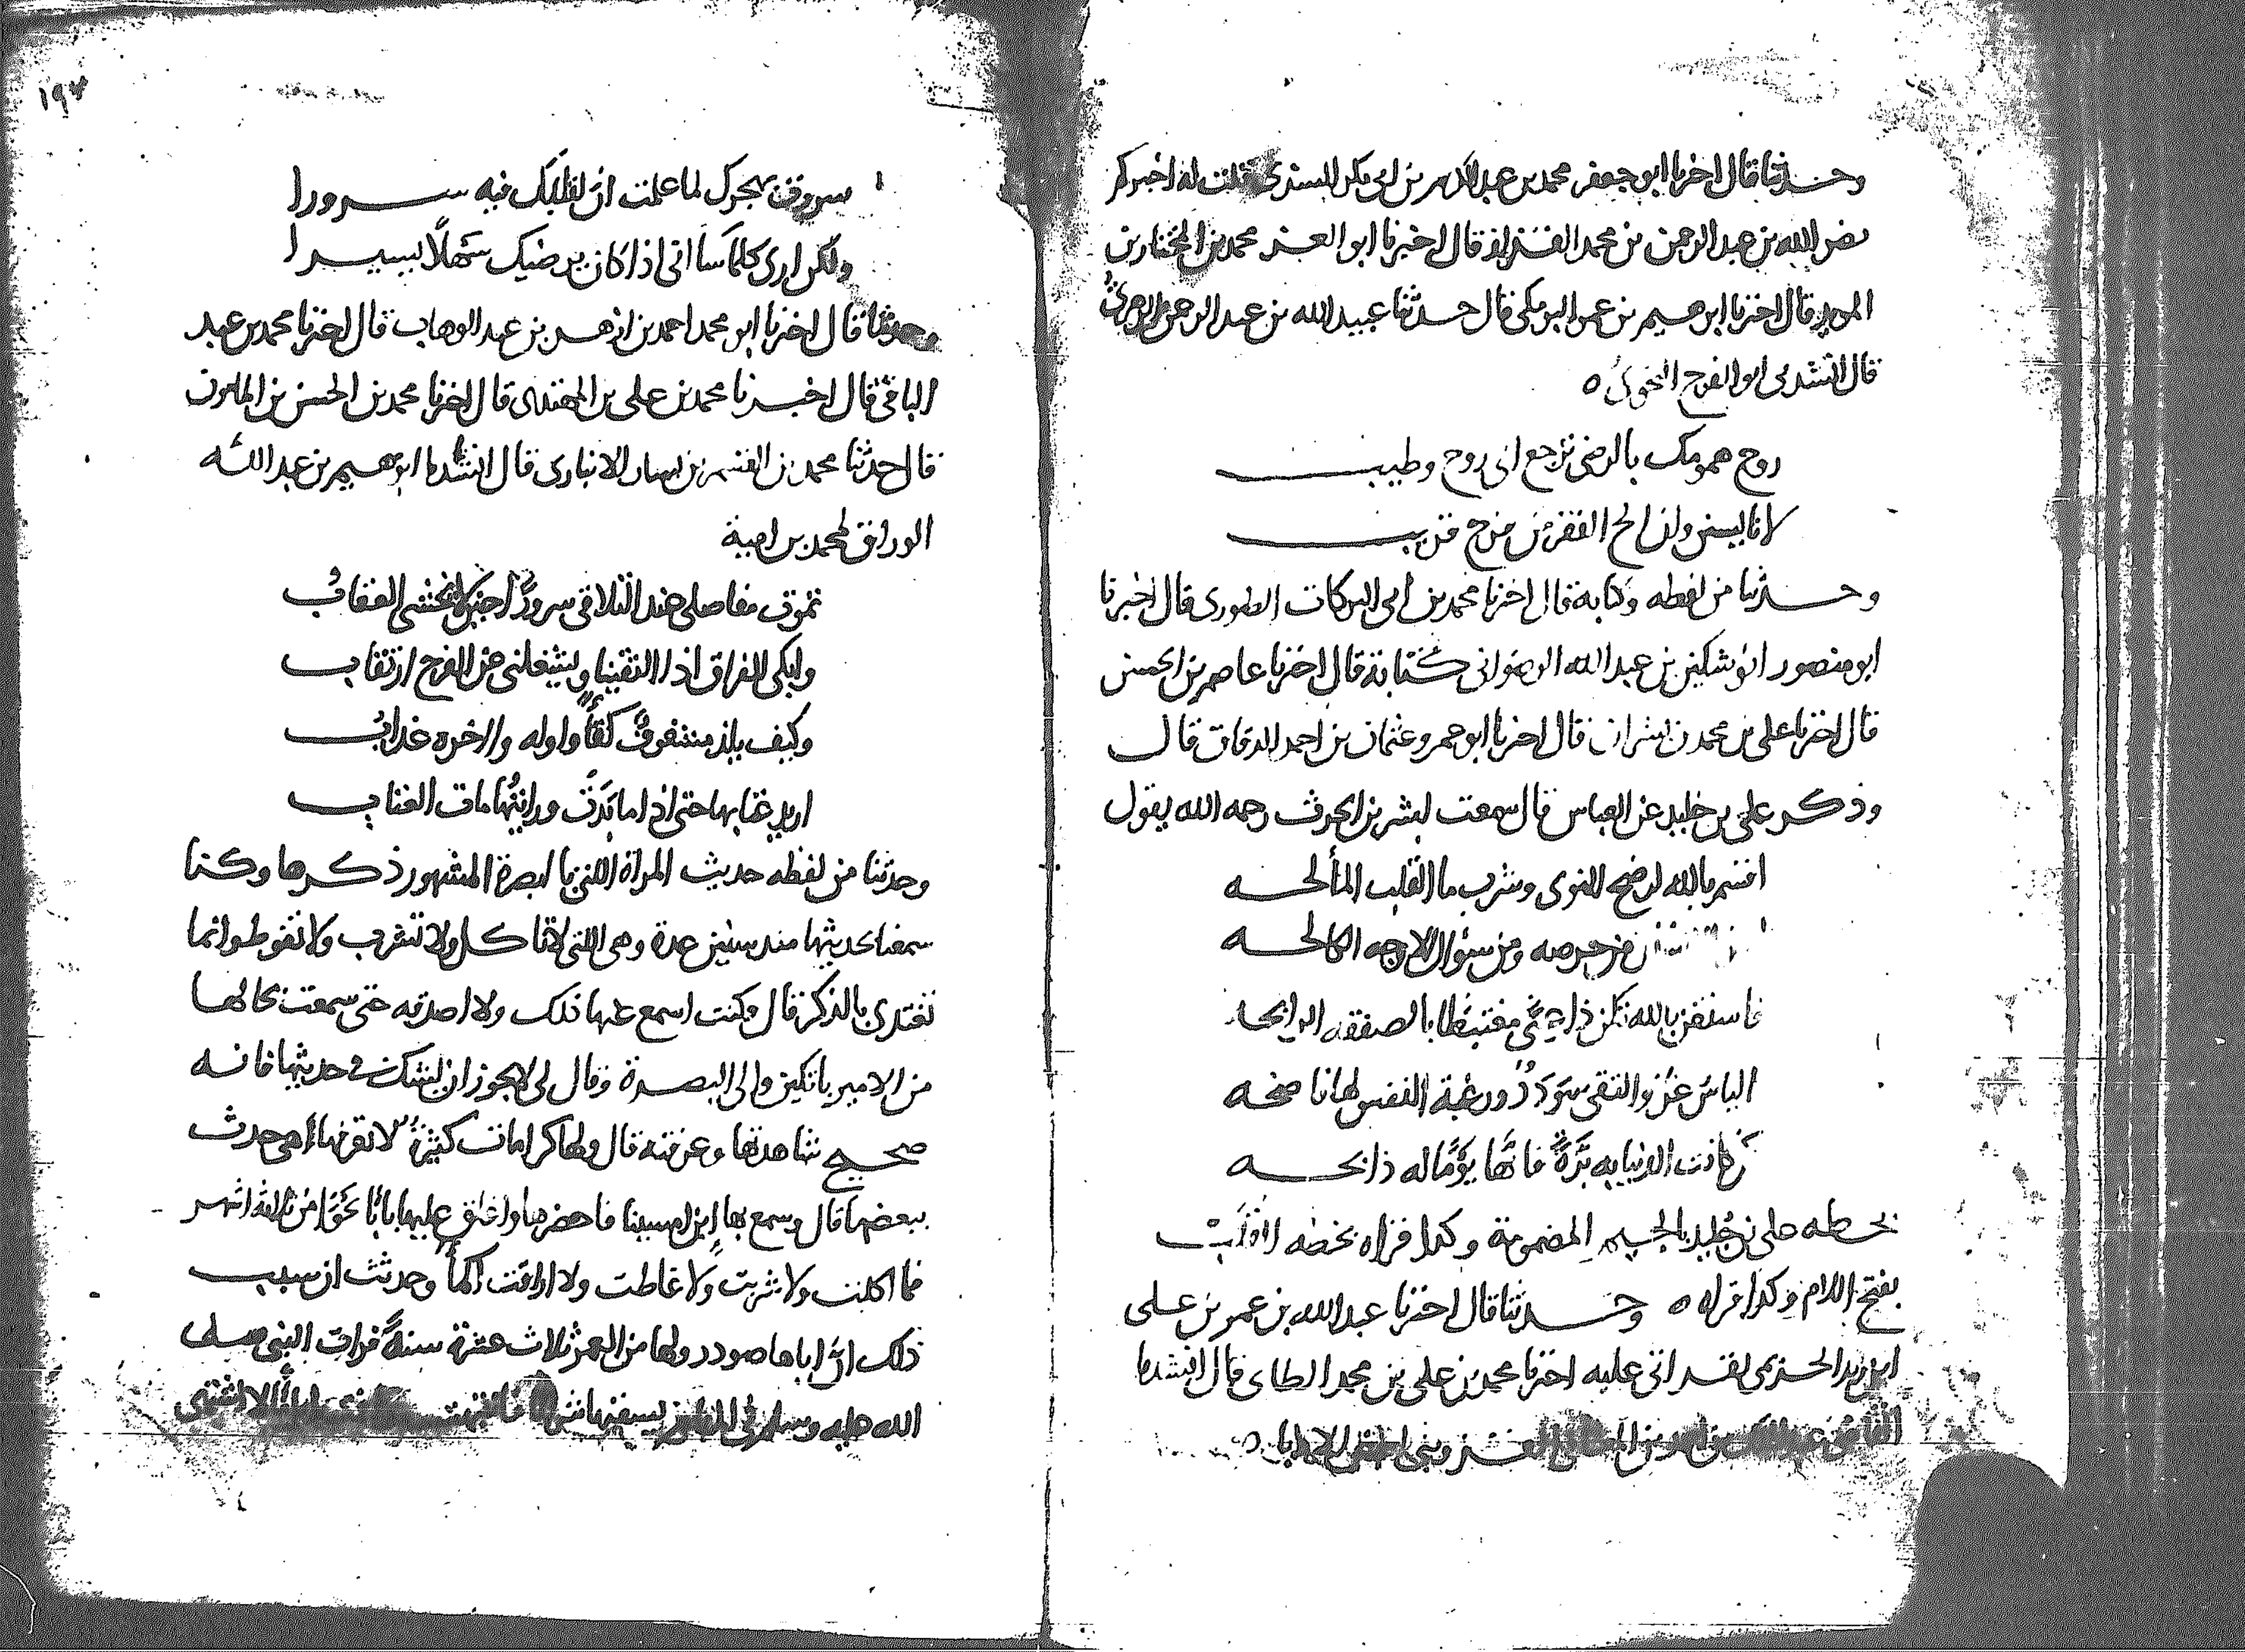 وحدثنا قال اخبرنا ابو جعفر محمد بن عبد الكريم بن ابي بكر السيدي قلت له اخبركم
نصر الله بن عبد الرحمن بن محمد القزاز قال اخبرنا ابو العز محمد بن المختار بن
المويد قال اخبرنا ابرهيم بن عمر البرمكي قال حدثنا عبيد الله بن عبد الرحمن الزهري
قال انشدني ابو الفرج النحوي ه
روح همومك بالرضى ترجع الى روح وطيب
لا تايسن وان الح الفقر من فرج قريب
وحدثنا من لفظه وكتابه قال اخبرنا محمد بن ابي البركات الصوري قال اخبرنا
ابو منصور انوشتكين بن عبد الله الرضواني كتابة قال اخبرنا عاصم بن الحسن
قال اخبرنا علي بن محمد بن بشران قال اخبرنا ابو عمرو عثمان بن احمد الدقاق قال
وذكر علي بن خليد عن العباس قال سمعت بشر بن الحرث رحمه الله يقول
اقسم بالله لرضخ النوى وشرب ما القلب المالحه
من حرصه ومن سؤال الاوجه الكالحه
فاستغن بالله تكن ذا غنى مغتبطا بالصفقه الرابحه
الياس عز والتقى سودد ورغبة النفس لها فاضحه
من كانت الدنيا به برة فانها يوما له ذابحه
بخطه علي بن جليد بالجيم المضمومة وكذا قراه بخطه القلب
بفتح اللام وكذا قراه ه وحدثنا قال اخبرنا عبد الله بن عمر بن علي
ابن زيد الحريمي لقراتي عليه اخبرنا محمد بن علي بن محمد الطاي قال انشدنا
١٩٣
سروري بهجرك لما علمت ان لقلبك فيه سرورا
ولكن ارى كلما ساني اذا كان يرضيك سهلا يسيرا
وحدثنا قال اخبرنا ابو محمد احمد بن ازهر بن عبد الوهاب قال اخبرنا محمد بن عبد
الباقي قال اخبرنا محمد بن علي بن المهتدي قال اخبرنا محمد بن الحسن بن المامون
قال حدثنا محمد بن القسم بن بشار الانباري قال انشدنا ابرهيم بن عبد الله
الوراق لمحمد بن امية
تموت مفاصلي عند التلاقي سرورا حين لا يخشى العقاب
وابكي الفراق اذا التقينا ويشغلني عن الفرح ارتقاب
وكيف يلذ مشغوف كفا واوله والاخره عذاب
اريد عتابها حتى اذا ما بدت ورايتها مات العتاب
وحدثنا من لفظه حديث المراة اللتي بالبصرة المشهور ذكرها وكنا
سمعنا بحديثها منذ سنين عدة وهي اللتي لا تاكل ولا تشرب ولا تغوط وانما
تغتدي بالذكر قال وكنت اسمع عنها ذلك ولا اصدقه حتى سمعت بحالها
من الامير باتكين والى البصرة وقال لي لا يجوز ان يشك في حديثها فانه
صحيح شاهدتها وعرفته قال ولها كرامات كثيرة لا تعرفها اهي حدث
ببعضها قال وسمع بها ابن امسينا فاحضرها واغلق عليها بابا نحوا من ثلثة اشهر
فما اكلت ولا شربت ولا غاطت ولا اراقت الماء وحدثت ان سبب
ذلك ان اباها صودر ولها من العمر ثلاث عشرة سنة فرات النبي صلى
الله عليه وسلم في المنام يسقيها